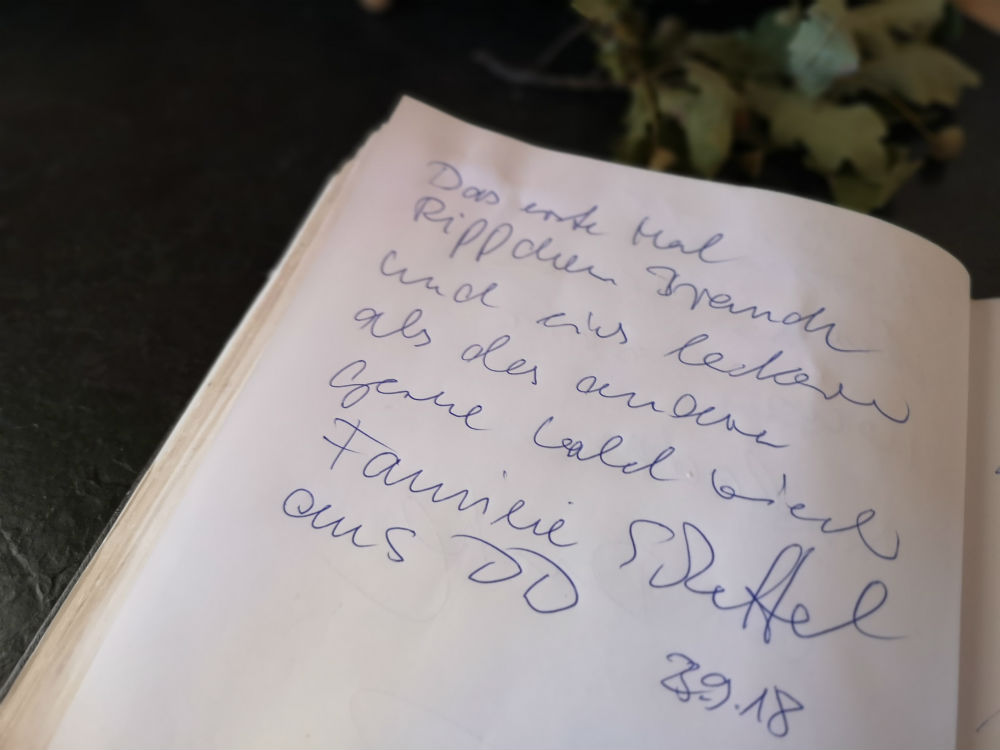 Das erste Mal
Rippchen Brauch
und eins leckerer
als das andere
Gerne bald wieder
Familie Scheffel
aus DD
3.9.18